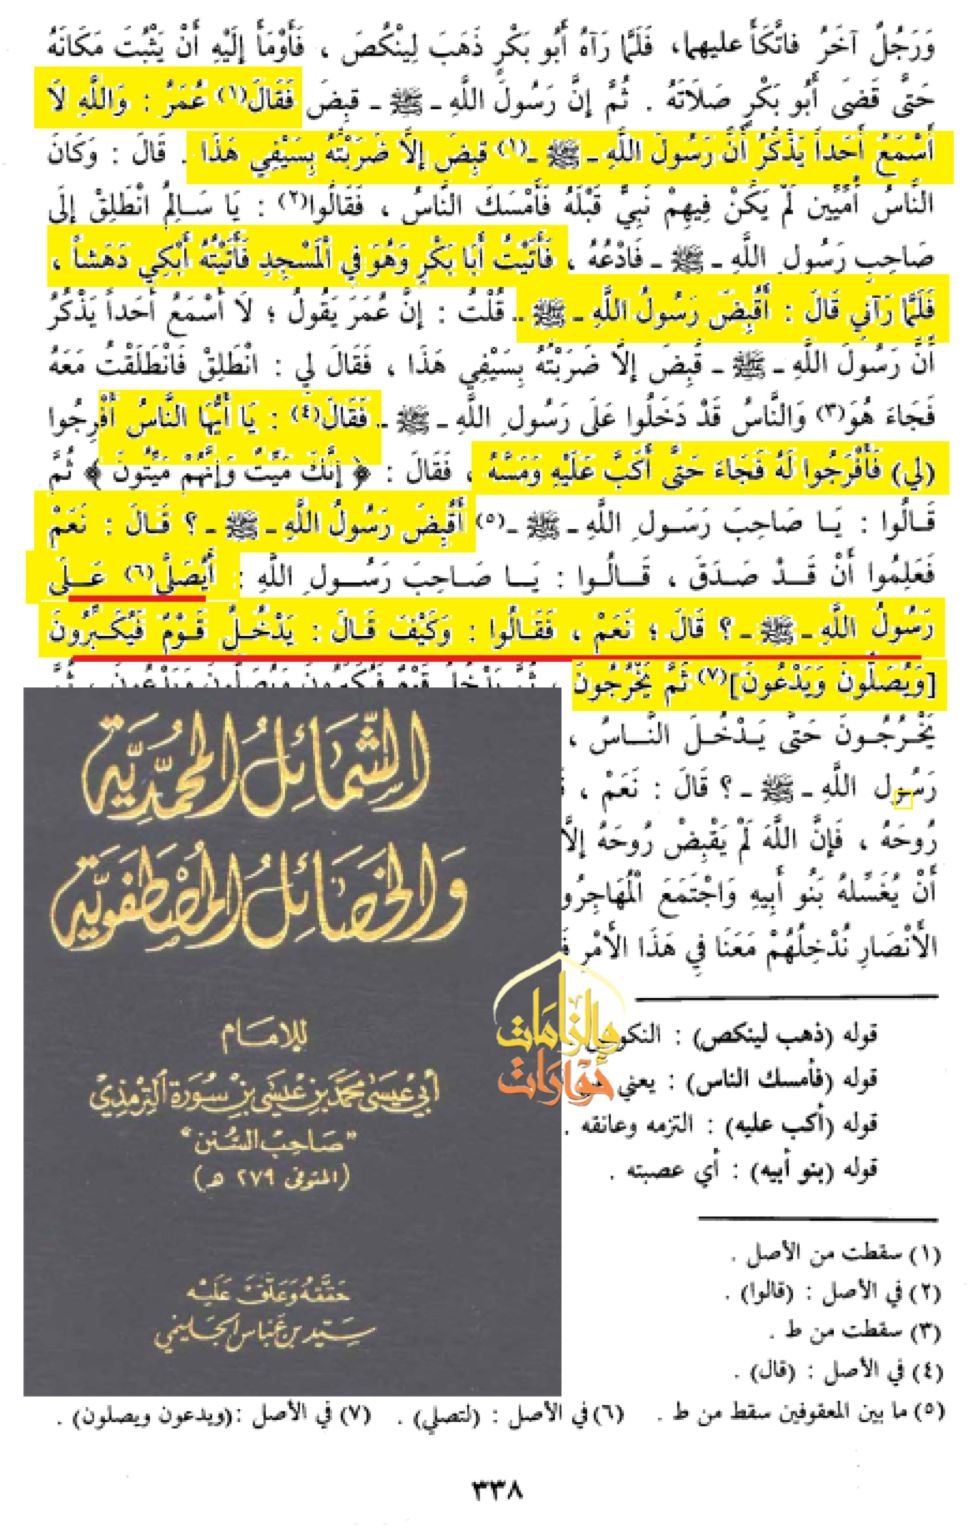 وَرَجُلٌ آخَرُ فاتَّكَأَ عليهما، فَلَمَّا رَآهُ أَبُو بَكْرٍ ذَهَبَ لِيَنْكُصَ ، فَأَوْمَأَ إِلَيْهِ أَنْ يَثْبُتَ مَكَانَهُ
حَتَّى قَضَى أَبُو بَكْرٍ صَلَاتَهُ . ثُمَّ إِنَّ رَسُولَ اللَّهِ ـ ﷺ ـ قبِضَ فَقَالَ(١) عُمَرُ : وَاللَّهِ لَا
أَسْمَعُ أَحَداً يَذْكُرُ أَنَّ رَسُولَ اللَّهِ ـ ﷺ ـ(١) قبِضَ إِلَّا ضَرَبْتُهُ بِسَيْفِي هَذَا . قَالَ : وَكَانَ
النَّاسُ أُمِّيِّين لَمْ يَكُنْ فِيهِمْ نَبِيٌّ قَبْلَهُ فَأَمْسَكَ النَّاسُ ، فَقَالُوا(٢) : يَا سَالِمُ انْطَلِقْ إِلَى
صَاحِبِ رَسُولِ اللَّهِ ـ ﷺ ـ فَادْعُهُ ، فَأَتَيْتُ أَبَا بَكْرٍ وَهُوَ فِي الْمَسْجِدِ فَأَتَيْتُهُ أَبْكِي دَهَشاً ،
فَلَمَّا رَآنِي قَالَ : أَقُبِضَ رَسُولُ اللَّهِ ـ ﷺ ـ. قُلْتُ : إِنَّ عُمَرَ يَقُولُ ؛ لَا أَسْمَعُ أَحَداً يَذْكُرُ
أَنَّ رَسُولَ اللَّهِ ـ ﷺ ـ قُبِضَ إِلَّا ضَرَبْتُهُ بِسَيْفِي هَذَا ، فَقَالَ لِي : انْطَلِقْ فَانْطَلَقْتُ مَعَهُ
فَجَاءَ هُوَ(٣) وَالنَّاسُ قَدْ دَخَلُوا عَلَى رَسُولِ اللَّهِ ـ ﷺ ـ فَقَالَ(٤) : يَا أَيُّهَا النَّاسُ أَفْرِجُوا
(لِي) فَأَفْرَجُوا لَهُ فَجَاءَ حَتَّى أَكَبَّ عَلَيْهِ وَمَسَّهُ ، فَقَالَ : ﴿ إِنَّكَ مَيِّتٌ وَإِنَّهُمْ مَيِّتُونَ ﴾ ثُمَّ
قَالُوا : يَا صَاحِبَ رَسُولِ اللَّهِ ـ ﷺ ـ(٥) أَقُبِضَ رَسُولُ اللَّهِ ـ ﷺ ـ ؟ قَالَ : نَعَمْ
فَعَلِمُوا أَنْ قَدْ صَدَقَ ، قَالُوا : يَا صَاحِبَ رَسُولِ اللَّهِ : أَيُصَلَّى(٦) عَلَى
رَسُولُ اللَّهِ ـ ﷺ ـ ؟ قَالَ ؛ نَعَمْ ، فَقَالُوا : وَكَيْفَ قَالَ : يَدْخُلُ قَوْمٌ فَيُكَبِّرُونَ
[وَيُصَلُّونَ وَيَدْعُونَ](٧) ثُمَّ يَخْرُجُونَ
يَخْرُجُونَ حَتَّى يَدْخُلَ النَّاسُ ،
رَسُولِ اللَّهِ ـ ﷺ ـ ؟ قَالَ : نَعَمْ ،
رُوحَهُ ، فَإِنَّ اللَّهَ لَمْ يَقْبِضْ رُوحَهُ إِلَّا
أَنْ يُغَسِّلَهُ بَنُو أَبِيهِ وَاجْتَمَعَ
الأَنْصَارِ نُدْخِلُهُمْ مَعَنَا فِي هَذَا الأَمْرِ
الشَّمَائِلُ المُحَمَّدِيَّة
وَالخَصَائِلُ المُصْطَفَوِيَّة
لِلإمَام
أبي عيسَى محمَّد بن عيسَى بن سَورَة الترمذيّ
"صَاحِبُ السُّنَن"
(المتوفى ٢٧٩ هـ)
حَقَّقَهُ وَعَلَّقَ عَلَيْهِ
سَيِّد بن عَبَّاس الجليمي
والزامات
حوارات
قوله (ذهب لينكص) :
قوله (فأمسك الناس) : يعني
قوله (أكب عليه) : التزمه وعانقه .
قوله (بنو أبيه) : أي عصبته .
(١) سقطت من الأصل .
(٢) في الأصل : (قالوا) .
(٣) سقطت من ط .
(٤) في الأصل : (قال) .
(٥) ما بين المعقوفين سقط من ط . (٦) في الأصل : (لتصلي) . (٧) في الأصل :(ويدعون ويصلون) .
٣٣٨